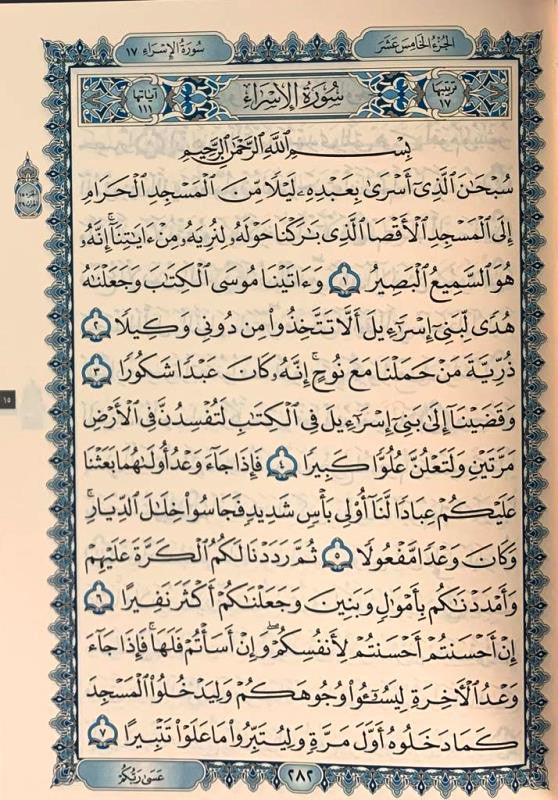 الجزء الخامس عشر
سورة الإسراء ١٧
ترتيبها ١٧
سُورَةُ الإِسْرَاءِ
آياتها ١١١
بِسْمِ ٱللَّهِ ٱلرَّحْمَٰنِ ٱلرَّحِيمِ
سُبْحَٰنَ ٱلَّذِىٓ أَسْرَىٰ بِعَبْدِهِۦ لَيْلًا مِّنَ ٱلْمَسْجِدِ ٱلْحَرَامِ
إِلَى ٱلْمَسْجِدِ ٱلْأَقْصَا ٱلَّذِى بَٰرَكْنَا حَوْلَهُۥ لِنُرِيَهُۥ مِنْ ءَايَٰتِنَآ ۚ إِنَّهُۥ
هُوَ ٱلسَّمِيعُ ٱلْبَصِيرُ ١ وَءَاتَيْنَا مُوسَى ٱلْكِتَٰبَ وَجَعَلْنَٰهُ
هُدًى لِّبَنِىٓ إِسْرَٰٓءِيلَ أَلَّا تَتَّخِذُوا۟ مِن دُونِى وَكِيلًا ٢
ذُرِّيَّةَ مَنْ حَمَلْنَا مَعَ نُوحٍ ۚ إِنَّهُۥ كَانَ عَبْدًا شَكُورًا ٣
وَقَضَيْنَآ إِلَىٰ بَنِىٓ إِسْرَٰٓءِيلَ فِى ٱلْكِتَٰبِ لَتُفْسِدُنَّ فِى ٱلْأَرْضِ
مَرَّتَيْنِ وَلَتَعْلُنَّ عُلُوًّا كَبِيرًا ٤ فَإِذَا جَآءَ وَعْدُ أُولَىٰهُمَا بَعَثْنَا
عَلَيْكُمْ عِبَادًا لَّنَآ أُو۟لِى بَأْسٍ شَدِيدٍ فَجَاسُوا۟ خِلَٰلَ ٱلدِّيَارِ ۚ
وَكَانَ وَعْدًا مَّفْعُولًا ٥ ثُمَّ رَدَدْنَا لَكُمُ ٱلْكَرَّةَ عَلَيْهِمْ
وَأَمْدَدْنَٰكُم بِأَمْوَٰلٍ وَبَنِينَ وَجَعَلْنَٰكُمْ أَكْثَرَ نَفِيرًا ٦
إِنْ أَحْسَنتُمْ أَحْسَنتُمْ لِأَنفُسِكُمْ ۖ وَإِنْ أَسَأْتُمْ فَلَهَا ۚ فَإِذَا جَآءَ
وَعْدُ ٱلْءَاخِرَةِ لِيَسُۥٓـُٔوا۟ وُجُوهَكُمْ وَلِيَدْخُلُوا۟ ٱلْمَسْجِدَ
كَمَا دَخَلُوهُ أَوَّلَ مَرَّةٍ وَلِيُتَبِّرُوا۟ مَا عَلَوْا۟ تَتْبِيرًا ٧
٢٨٢
عَسَىٰ رَبُّكُمْ
١٥